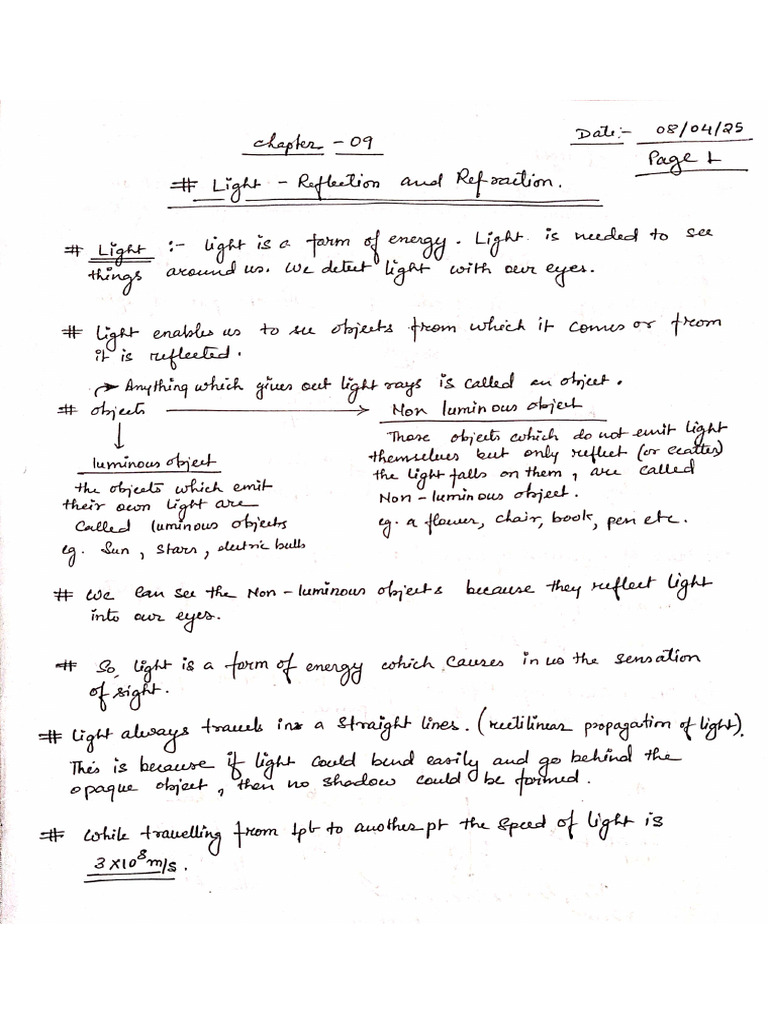 Date:- 08/04/25
Chapter - 09
Page 1
# Light - Reflection and Refraction.
# Light :- light is a form of energy. Light is needed to see
things around us. We detect light with our eyes.
# Light enables us to see objects from which it comes or from
it is reflected.
→ Anything which gives out light rays is called an object.
# objects → Non luminous object
↓
luminous object
the objects which emit
their own light are
called luminous objects
eg. Sun, stars, electric bulbs
Those objects which do not emit light
themselves but only reflect (or scatter)
the light falls on them, are called
Non-luminous object.
eg. a flower, chair, book, pen etc.
# We can see the Non-luminous objects because they reflect light
into our eyes.
# So, light is a form of energy which causes in us the sensation
of sight.
# Light always travels in a straight lines. (rectilinear propagation of light).
This is because if light could bend easily and go behind the
opaque object, then no shadow could be formed.
# While travelling from 1pt to another pt the speed of light is
3×10⁸ m/s.